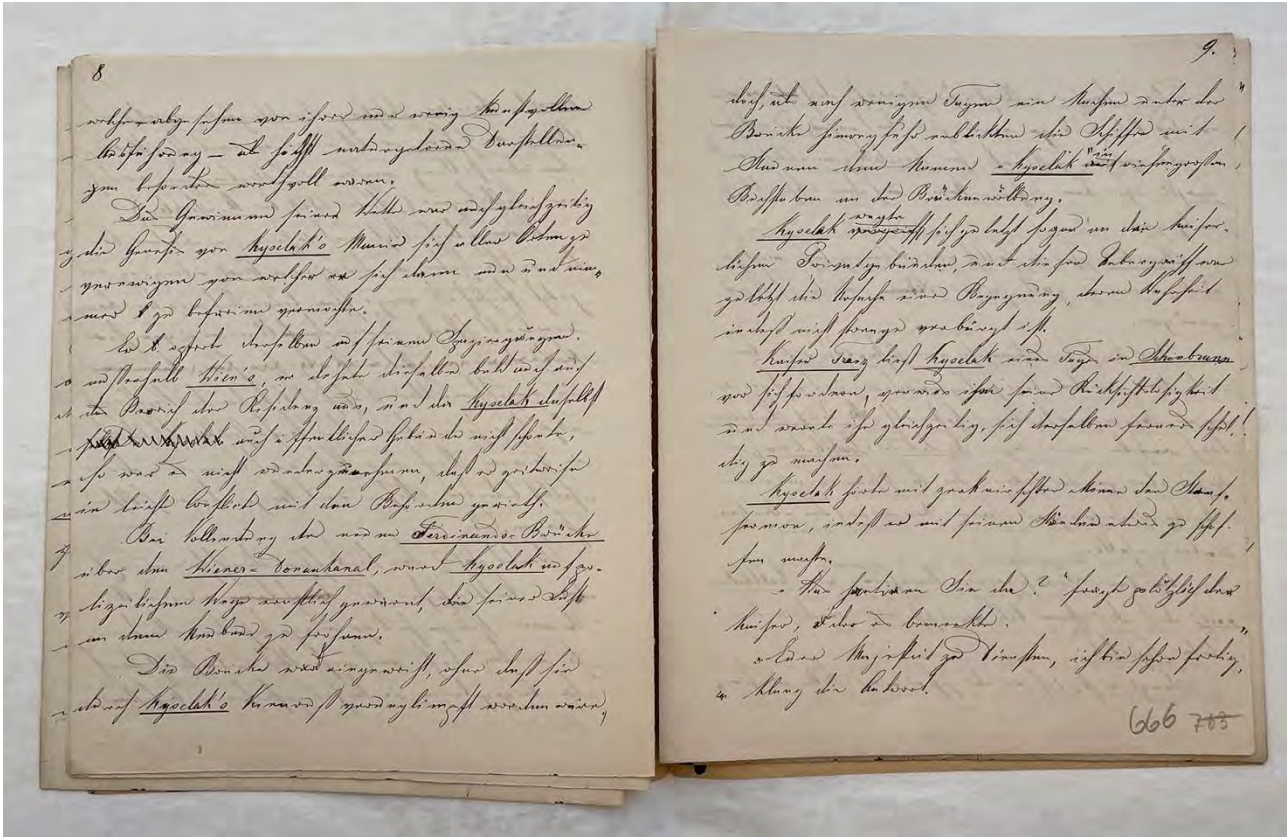 8
welche – abgesehen von ihrer nur wenig kunstvollen
Ausführung – als höchst naturgetreue Darstellun-
gen besonders werthvoll waren.
Das Gewinnen seiner Wette war auch gleichzeitig
die Genesis von Kyselak's Manie sich aller Orten zu
verewigen von welcher er sich dann nun und nim-
mer zu befreien vermochte.
Er opferte derselben auf seinen Spaziergängen
ausserhalb Wien's, er dehnte dieselbe bald auch auf
den Bereich der Residenz aus, und da Kyselak daselbst
auch öffentlicher Gebäude nicht schonte,
so war es nicht wunderzunehmen, daß er zeitweise
in leicht Conflicte mit den Behörden gerieth.
Bei Vollendung der neuen Ferdinands-Brücke
über den Wiener-Donaukanal, ward Kyselak auf po-
lizeilichem Wege ernstlich gewarnt, seiner Lust
an dem Neubau zu fröhnen.
Die Brücke ward eingeweiht, ohne daß sie
durch Kyselak's verunglimpft worden wäre,
9.
doch, als nach wenigen Tagen ein Nachen unter der
Brücke hinwegfuhr erblickten die Schiffer mit
Staunen den Namen "Kyselak" in riesengrossen
Buchstaben an der Brückenwölbung.
Kyselak wagte sich zuletzt sogar an die kaiser-
lichen Privatgebäuden, und dieser Uebergriff war
zuletzt die Ursache einer Begegnung, deren Wahrheit
indeß nicht strenge verbürgt ist.
Kaiser Franz ließ Kyselak eines Tages in Schönbrunn
vor sich fordern, verwies ihm seine Rücksichtslosigkeit
und warnte ihn gleichzeitig, sich derselben ferner schul-
dig zu machen.
Kyselak hörte mit zerknirschter Miene den Straf-
sermon, indeß er mit seinen Händen etwas zu schaf-
fen machte.
"Was hantiren Sie da?" fragt plötzlich der
Kaiser, der es bemerkte.
"Euer Majestät zu Diensten, ich bin schon fertig,"
klang die Antwort.
666 703